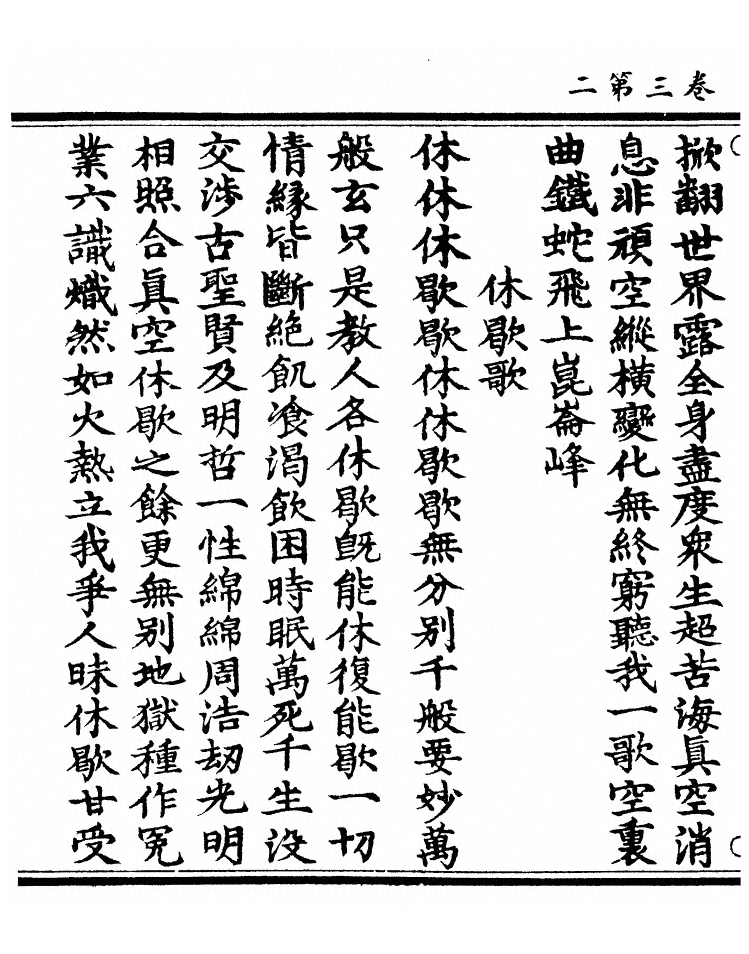 卷三第二
掀翻世界露全身盡度衆生超苦海真空消
息非頑空縱橫變化無終窮聽我一歌空裏
曲鐵蛇飛上崑崙峰
休歇歌
休休休歇歇休休歇歇無分别千般要妙萬
般玄只是教人各休歇旣能休復能歇一切
情緣皆斷絶飢飡渴飲困時眠萬死千生没
交涉古聖賢及明哲一性綿綿周浩劫光明
相照合眞空休歇之餘更無别地獄種作冤
業六識熾然如火熱立我爭人昧休歇甘受